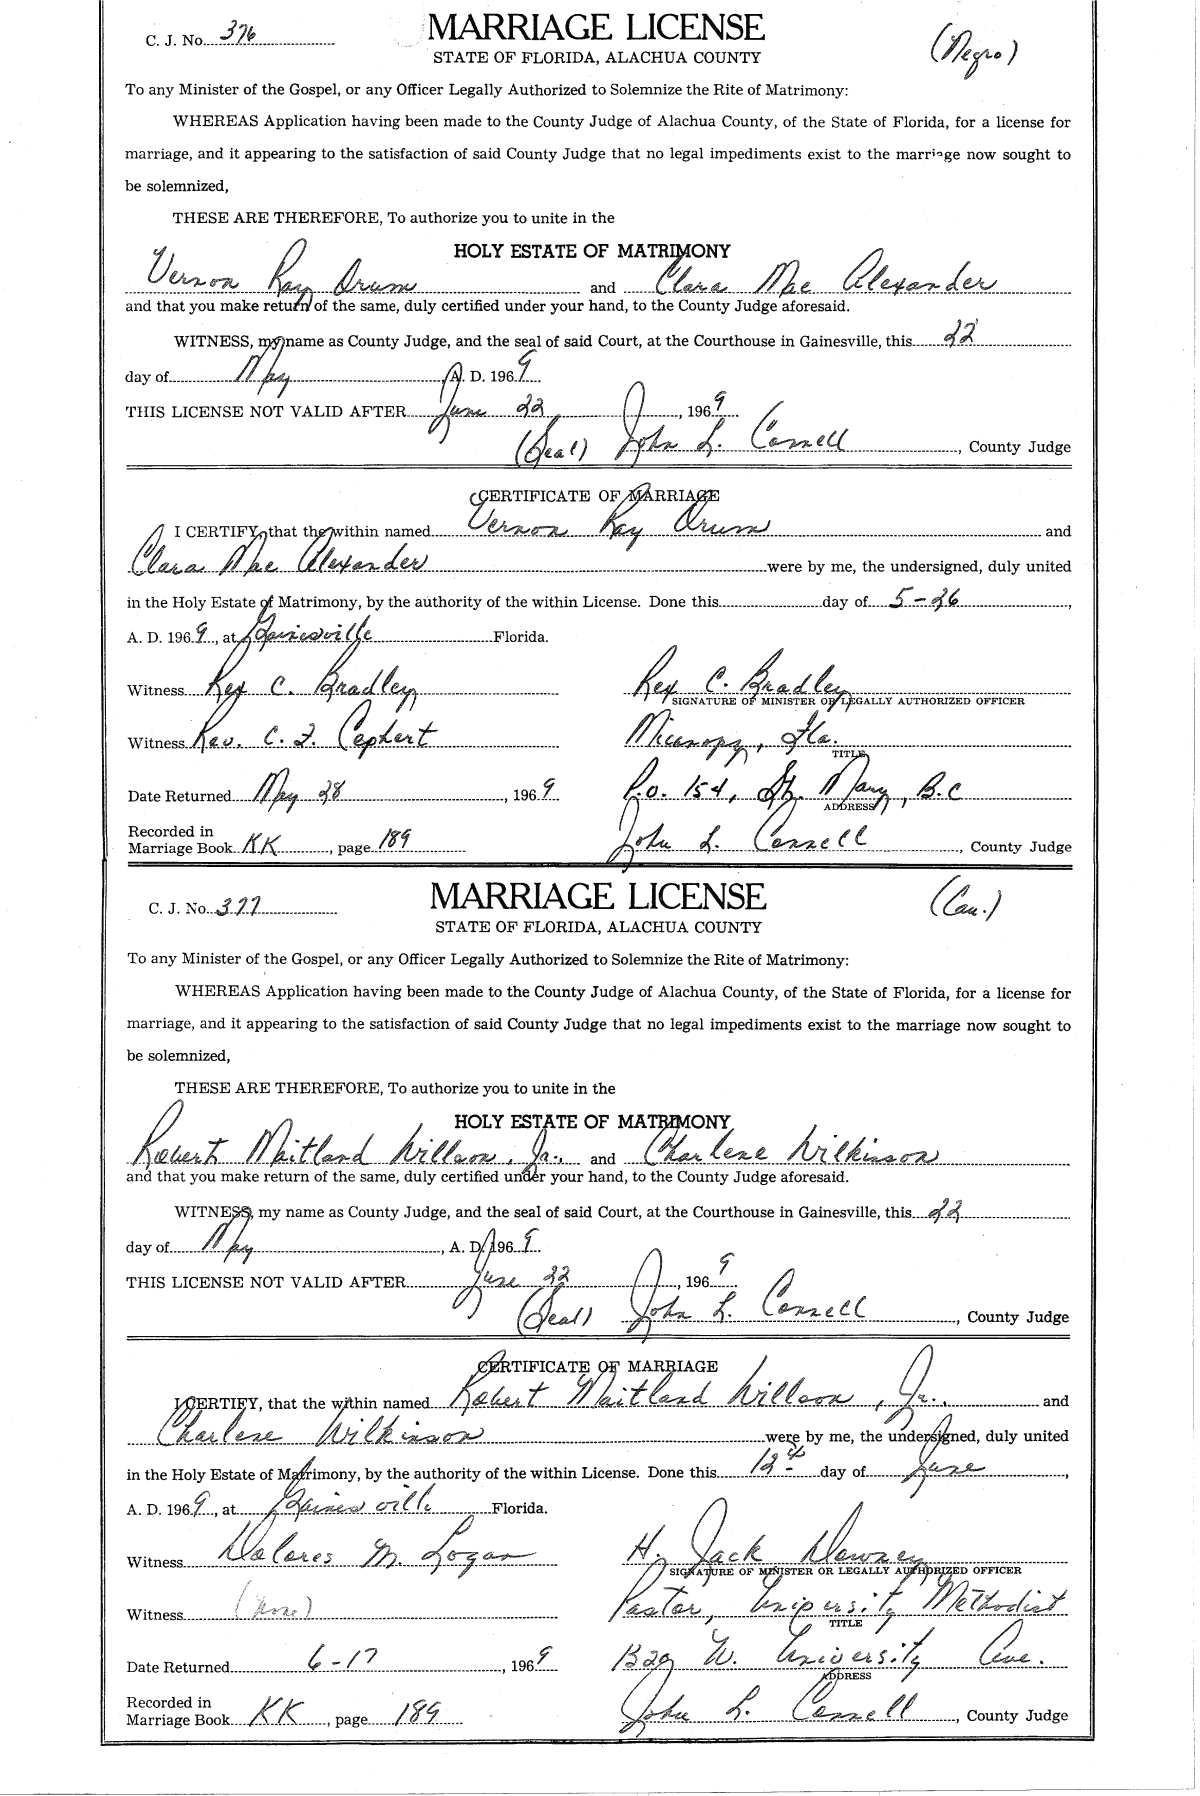 C. J. No. 376
MARRIAGE LICENSE
(Negro)
STATE OF FLORIDA, ALACHUA COUNTY
To any Minister of the Gospel, or any Officer Legally Authorized to Solemnize the Rite of Matrimony:
WHEREAS Application having been made to the County Judge of Alachua County, of the State of Florida, for a license for
marriage, and it appearing to the satisfaction of said County Judge that no legal impediments exist to the marriage now sought to
be solemnized,
THESE ARE THEREFORE, To authorize you to unite in the
HOLY ESTATE OF MATRIMONY
Vernon Ray Drum and Clara Mae Alexander
and that you make return of the same, duly certified under your hand, to the County Judge aforesaid.
WITNESS, my name as County Judge, and the seal of said Court, at the Courthouse in Gainesville, this 22
day of May A. D. 1969
THIS LICENSE NOT VALID AFTER June 22, 1969
(Seal) John L. Connell, County Judge
CERTIFICATE OF MARRIAGE
I CERTIFY, that the within named Vernon Ray Drum and
Clara Mae Alexander were by me, the undersigned, duly united
in the Holy Estate of Matrimony, by the authority of the within License. Done this day of 5-26,
A. D. 1969, at Gainesville Florida.
Witness Rex C. Bradley Rex C. Bradley
SIGNATURE OF MINISTER OR LEGALLY AUTHORIZED OFFICER
Witness Rev. C. F. Cephert Micanopy, Fla.
TITLE
Date Returned May 28, 1969 P.O. 154, St. Mary, B.C
ADDRESS
Recorded in
Marriage Book KK, page 189 John L. Connell, County Judge
C. J. No. 377
MARRIAGE LICENSE
(Cau.)
STATE OF FLORIDA, ALACHUA COUNTY
To any Minister of the Gospel, or any Officer Legally Authorized to Solemnize the Rite of Matrimony:
WHEREAS Application having been made to the County Judge of Alachua County, of the State of Florida, for a license for
marriage, and it appearing to the satisfaction of said County Judge that no legal impediments exist to the marriage now sought to
be solemnized,
THESE ARE THEREFORE, To authorize you to unite in the
HOLY ESTATE OF MATRIMONY
Robert Maitland Willson, Jr., and Charlene Wilkinson
and that you make return of the same, duly certified under your hand, to the County Judge aforesaid.
WITNESS, my name as County Judge, and the seal of said Court, at the Courthouse in Gainesville, this 22
day of May, A. D. 1969
THIS LICENSE NOT VALID AFTER June 22, 1969
(Seal) John L. Connell, County Judge
CERTIFICATE OF MARRIAGE
I CERTIFY, that the within named Robert Maitland Willson, Jr., and
Charlene Wilkinson were by me, the undersigned, duly united
in the Holy Estate of Matrimony, by the authority of the within License. Done this 12th day of June,
A. D. 1969, at Gainesville Florida.
Witness Dolores M. Logan H. Jack Downey
SIGNATURE OF MINISTER OR LEGALLY AUTHORIZED OFFICER
Witness (none) Pastor, University Methodist
TITLE
Date Returned 6-17, 1969 1320 W. University Ave.
ADDRESS
Recorded in
Marriage Book KK, page 189 John L. Connell, County Judge